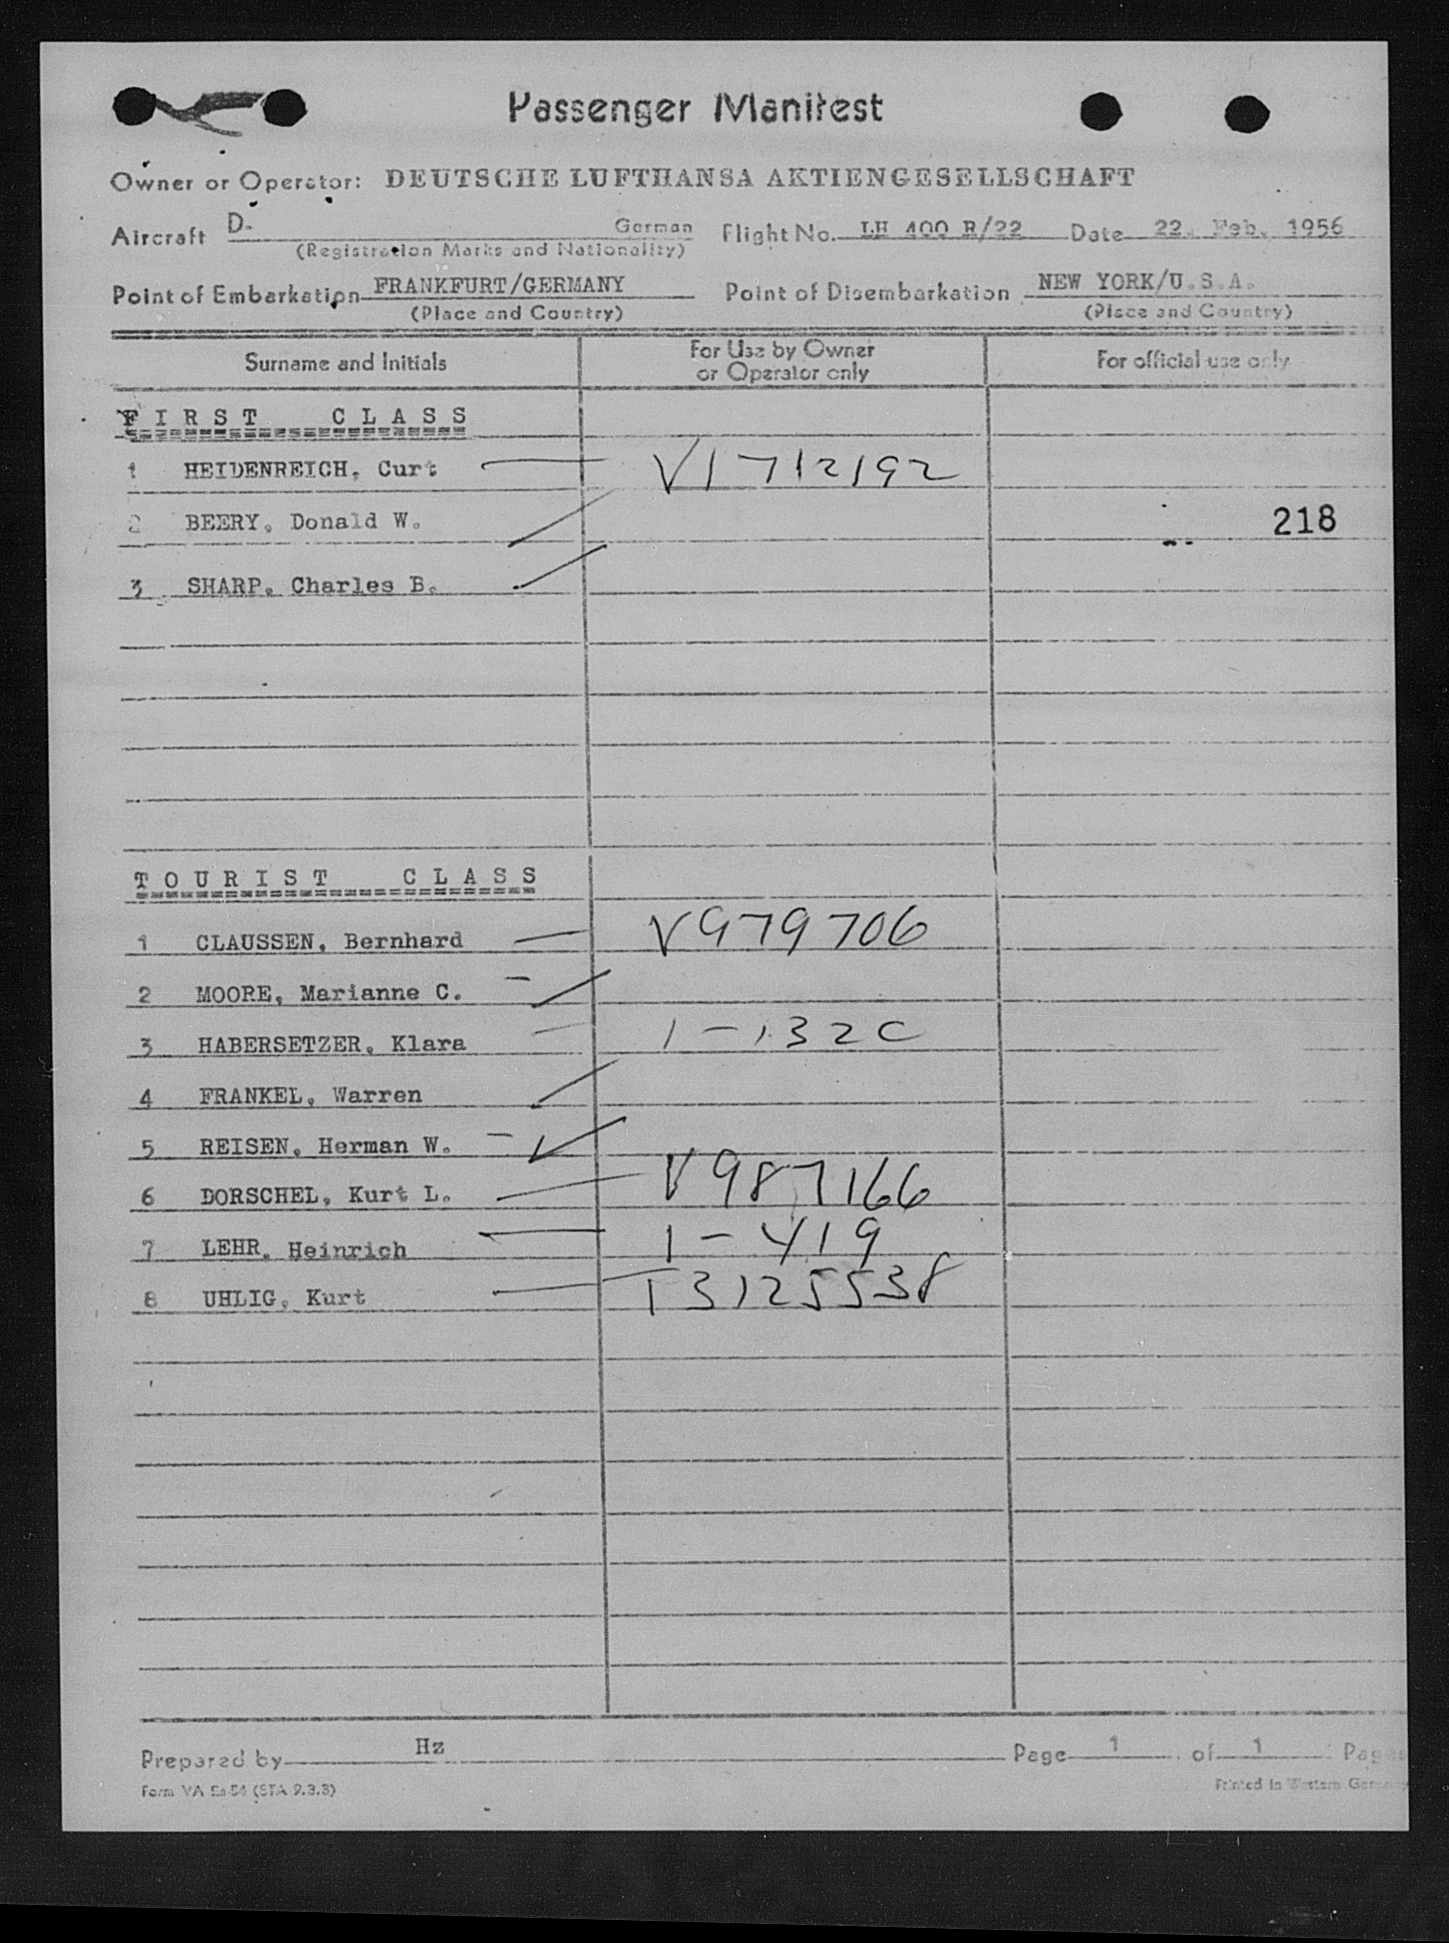 Passenger Manifest
Owner or Operator: DEUTSCHE LUFTHANSA AKTIENGESELLSCHAFT
Aircraft D- German Flight No. LH 400 R/22 Date 22. Feb. 1956
(Registration Marks and Nationality)
Point of Embarkation FRANKFURT/GERMANY Point of Disembarkation NEW YORK/U.S.A.
(Place and Country) (Place and Country)
Surname and Initials For Use by Owner or Operator only For official use only
FIRST CLASS
1 HEIDENREICH, Curt V1712192
2 BEERY, Donald W. 218
3 SHARP, Charles B.
TOURIST CLASS
1 CLAUSSEN, Bernhard V979706
2 MOORE, Marianne C.
3 HABERSETZER, Klara 1-132C
4 FRANKEL, Warren
5 REISEN, Herman W.
6 DORSCHEL, Kurt L. V987166
7 LEHR, Heinrich 1-419
8 UHLIG, Kurt T3125538
Prepared by Hz Page 1 of 1 Pages
Form VA 5a-54 (STA 9.3.3) Printed in Western Germany